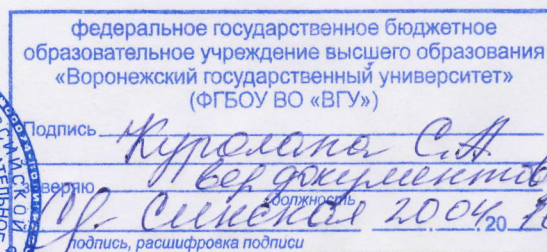 федеральное государственное бюджетное
образовательное учреждение высшего образования
«Воронежский государственный университет»
(ФГБОУ ВО «ВГУ»)
Подпись Куролапа С.А.
заверяю вед документовед
должность
Синская 20 04 20
подпись, расшифровка подписи